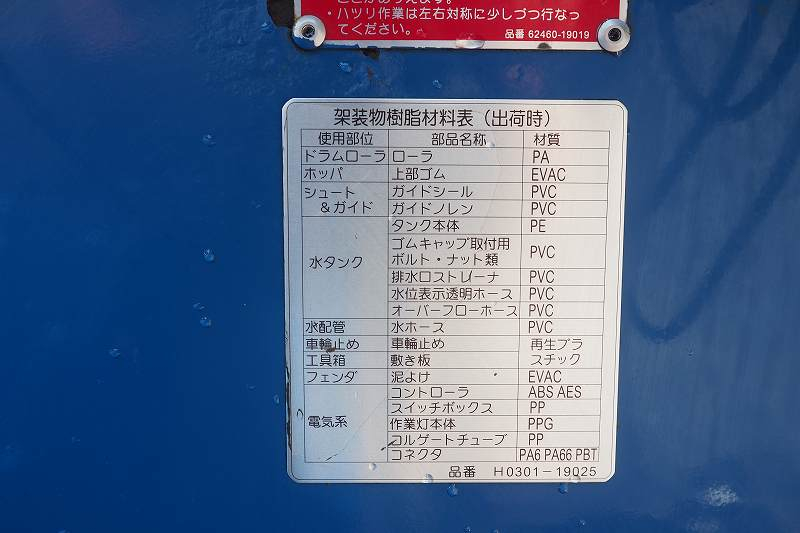 ・ハツリ作業は左右対称に少しづつ行なっ
てください。
品番 62460-19019
架装物樹脂材料表（出荷時）
使用部位 部品名称 材質
ドラムローラ ローラ PA
ホッパ 上部ゴム EVAC
シュート ガイドシール PVC
＆ガイド ガイドノレン PVC
水タンク タンク本体 PE
ゴムキャップ取付用
ボルト・ナット類 PVC
排水口ストレーナ PVC
水位表示透明ホース PVC
オーバーフローホース PVC
水配管 水ホース PVC
車輪止め 車輪止め 再生プラ
工具箱 敷き板 スチック
フェンダ 泥よけ EVAC
電気系 コントローラ ABS AES
スイッチボックス PP
作業灯本体 PPG
コルゲートチューブ PP
コネクタ PA6 PA66 PBT
品番 H0301－19025